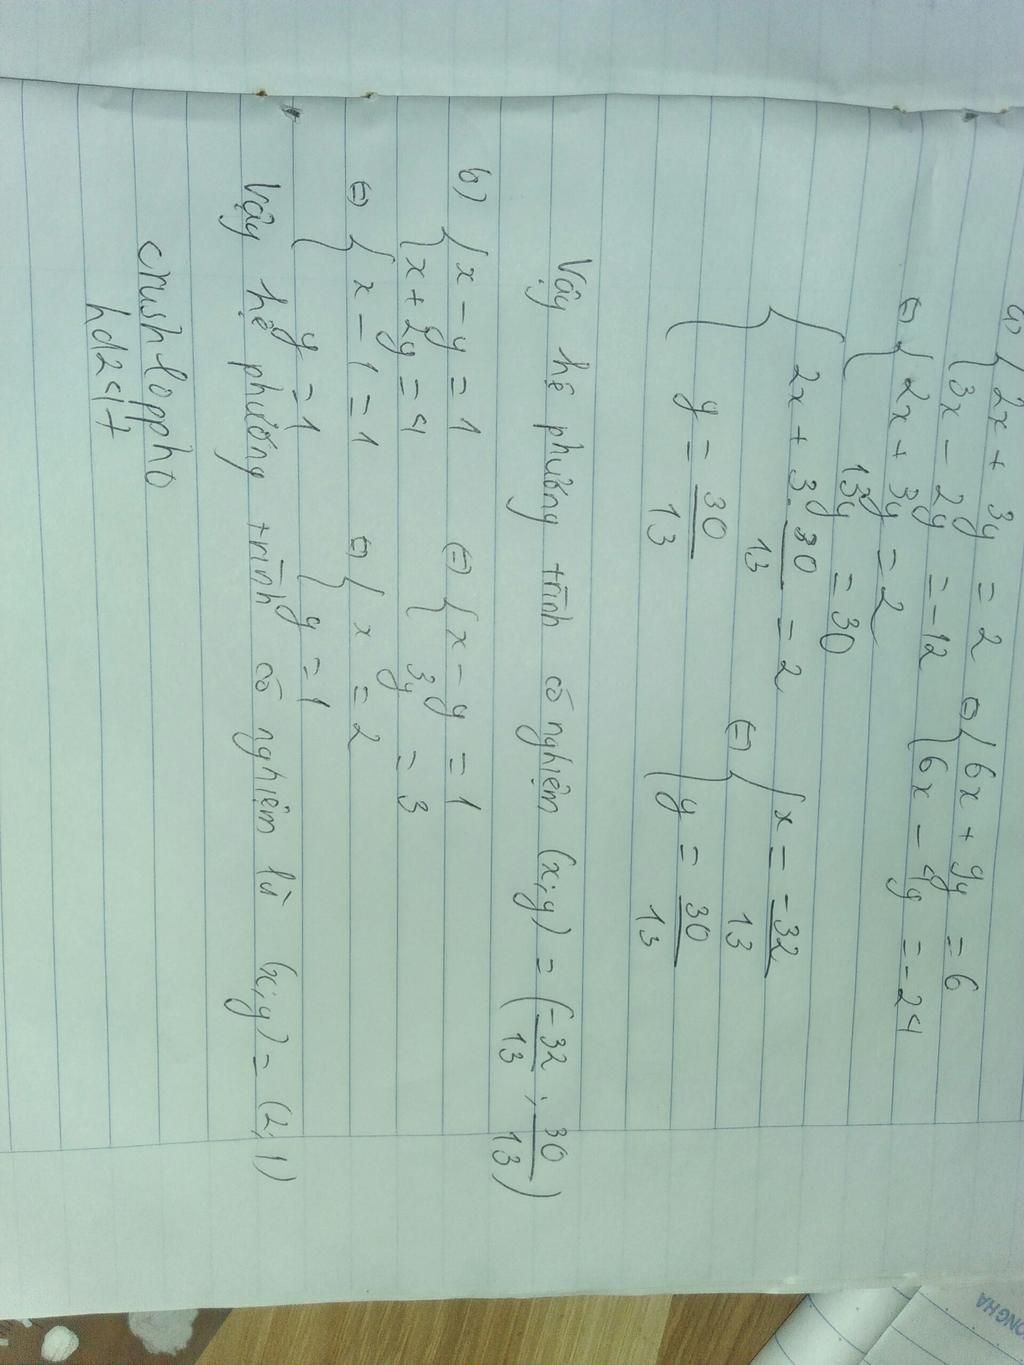 a) { 2x + 3y = 2 ⇔ { 6x + 9y = 6
3x - 2y = -12 6x - 4y = -24
⇔ { 2x + 3y = 2
13y = 30
{ 2x + 3. 30/13 = 2 ⇔ { x = -32/13
y = 30/13 y = 30/13
Vậy hệ phương trình có nghiệm (x;y) = (-32/13 ; 30/13)
b) { x - y = 1 ⇔ { x - y = 1
x + 2y = 4 3y = 3
⇔ { x - 1 = 1 ⇔ { x = 2
y = 1 y = 1
Vậy hệ phương trình có nghiệm là (x;y) = (2;1)
crush loppho
hd2417
ONG HA